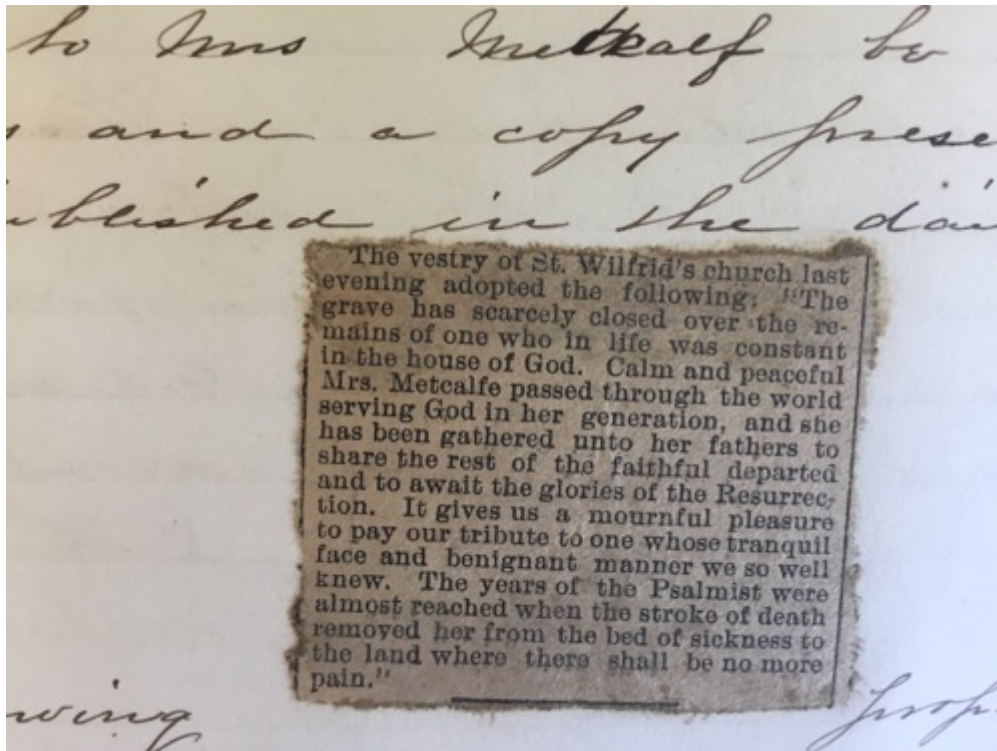 to Mrs Metcalf be
and a copy prese
ublished in the dai
The vestry of St. Wilfrid's church last
evening adopted the following: "The
grave has scarcely closed over the re-
mains of one who in life was constant
in the house of God. Calm and peaceful
Mrs. Metcalfe passed through the world
serving God in her generation, and she
has been gathered unto her fathers to
share the rest of the faithful departed
and to await the glories of the Resurrec-
tion. It gives us a mournful pleasure
to pay our tribute to one whose tranquil
face and benignant manner we so well
knew. The years of the Psalmist were
almost reached when the stroke of death
removed her from the bed of sickness to
the land where there shall be no more
pain."
wing prop